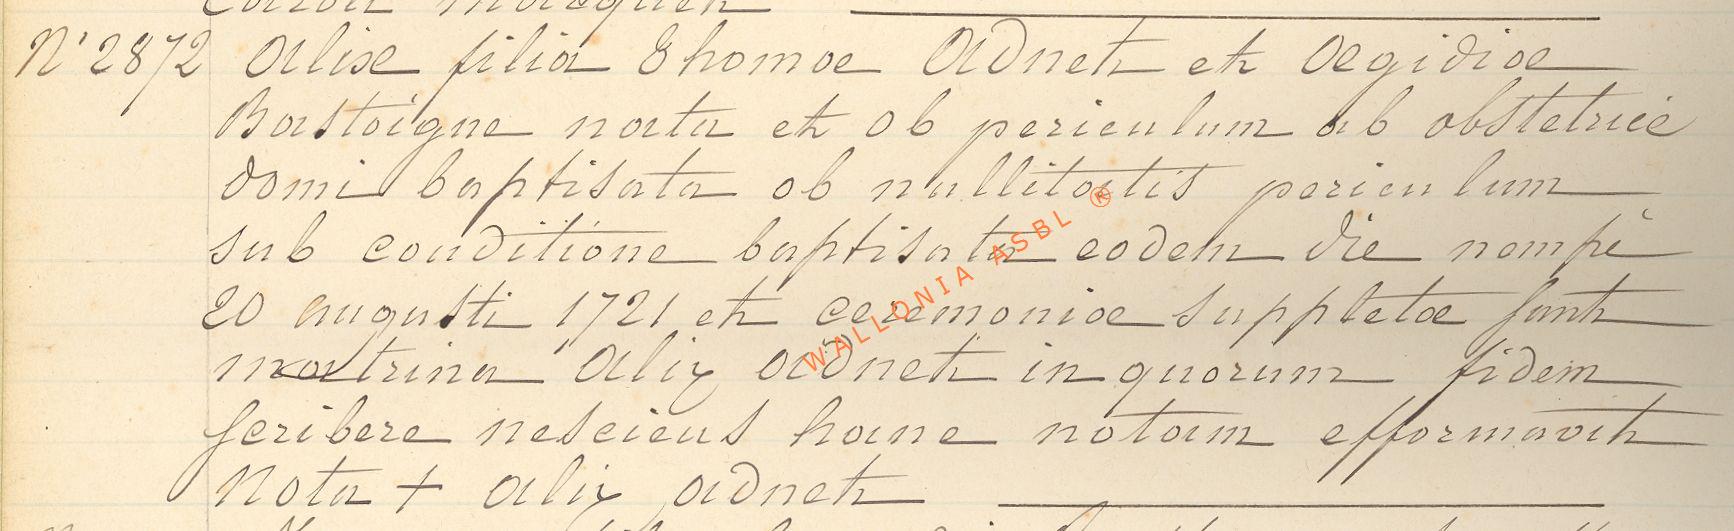 N° 2872 Alise filia Thomae Adnet et Aegidiae
Bastoigne nata et ob periculum ab obstetrice
domi baptisata ob nullitatis periculum
sub conditione baptisata eodem die nempè
20 augusti 1721 et ceremoniae suppletae sunt
matrina Alix Adnet in quorum fidem
scribere nesciens hanc notam efformavit
Nota + Alix Adnet
WALLONIA ASBL ®